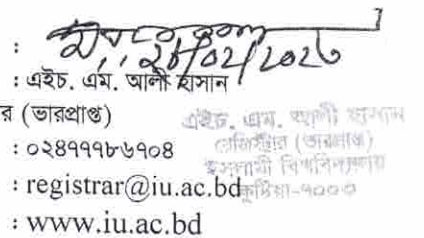 :
: এইচ. এম. আলী হাসান
র (ভারপ্রাপ্ত)
: ০২৪৭৭৭৮৬৭০৪
: registrar@iu.ac.bd
: www.iu.ac.bd
এইচ. এম. আলী হাসান
রেজিস্ট্রার (ভারপ্রাপ্ত)
ইসলামী বিশ্ববিদ্যালয়
কুষ্টিয়া-৭০০৩